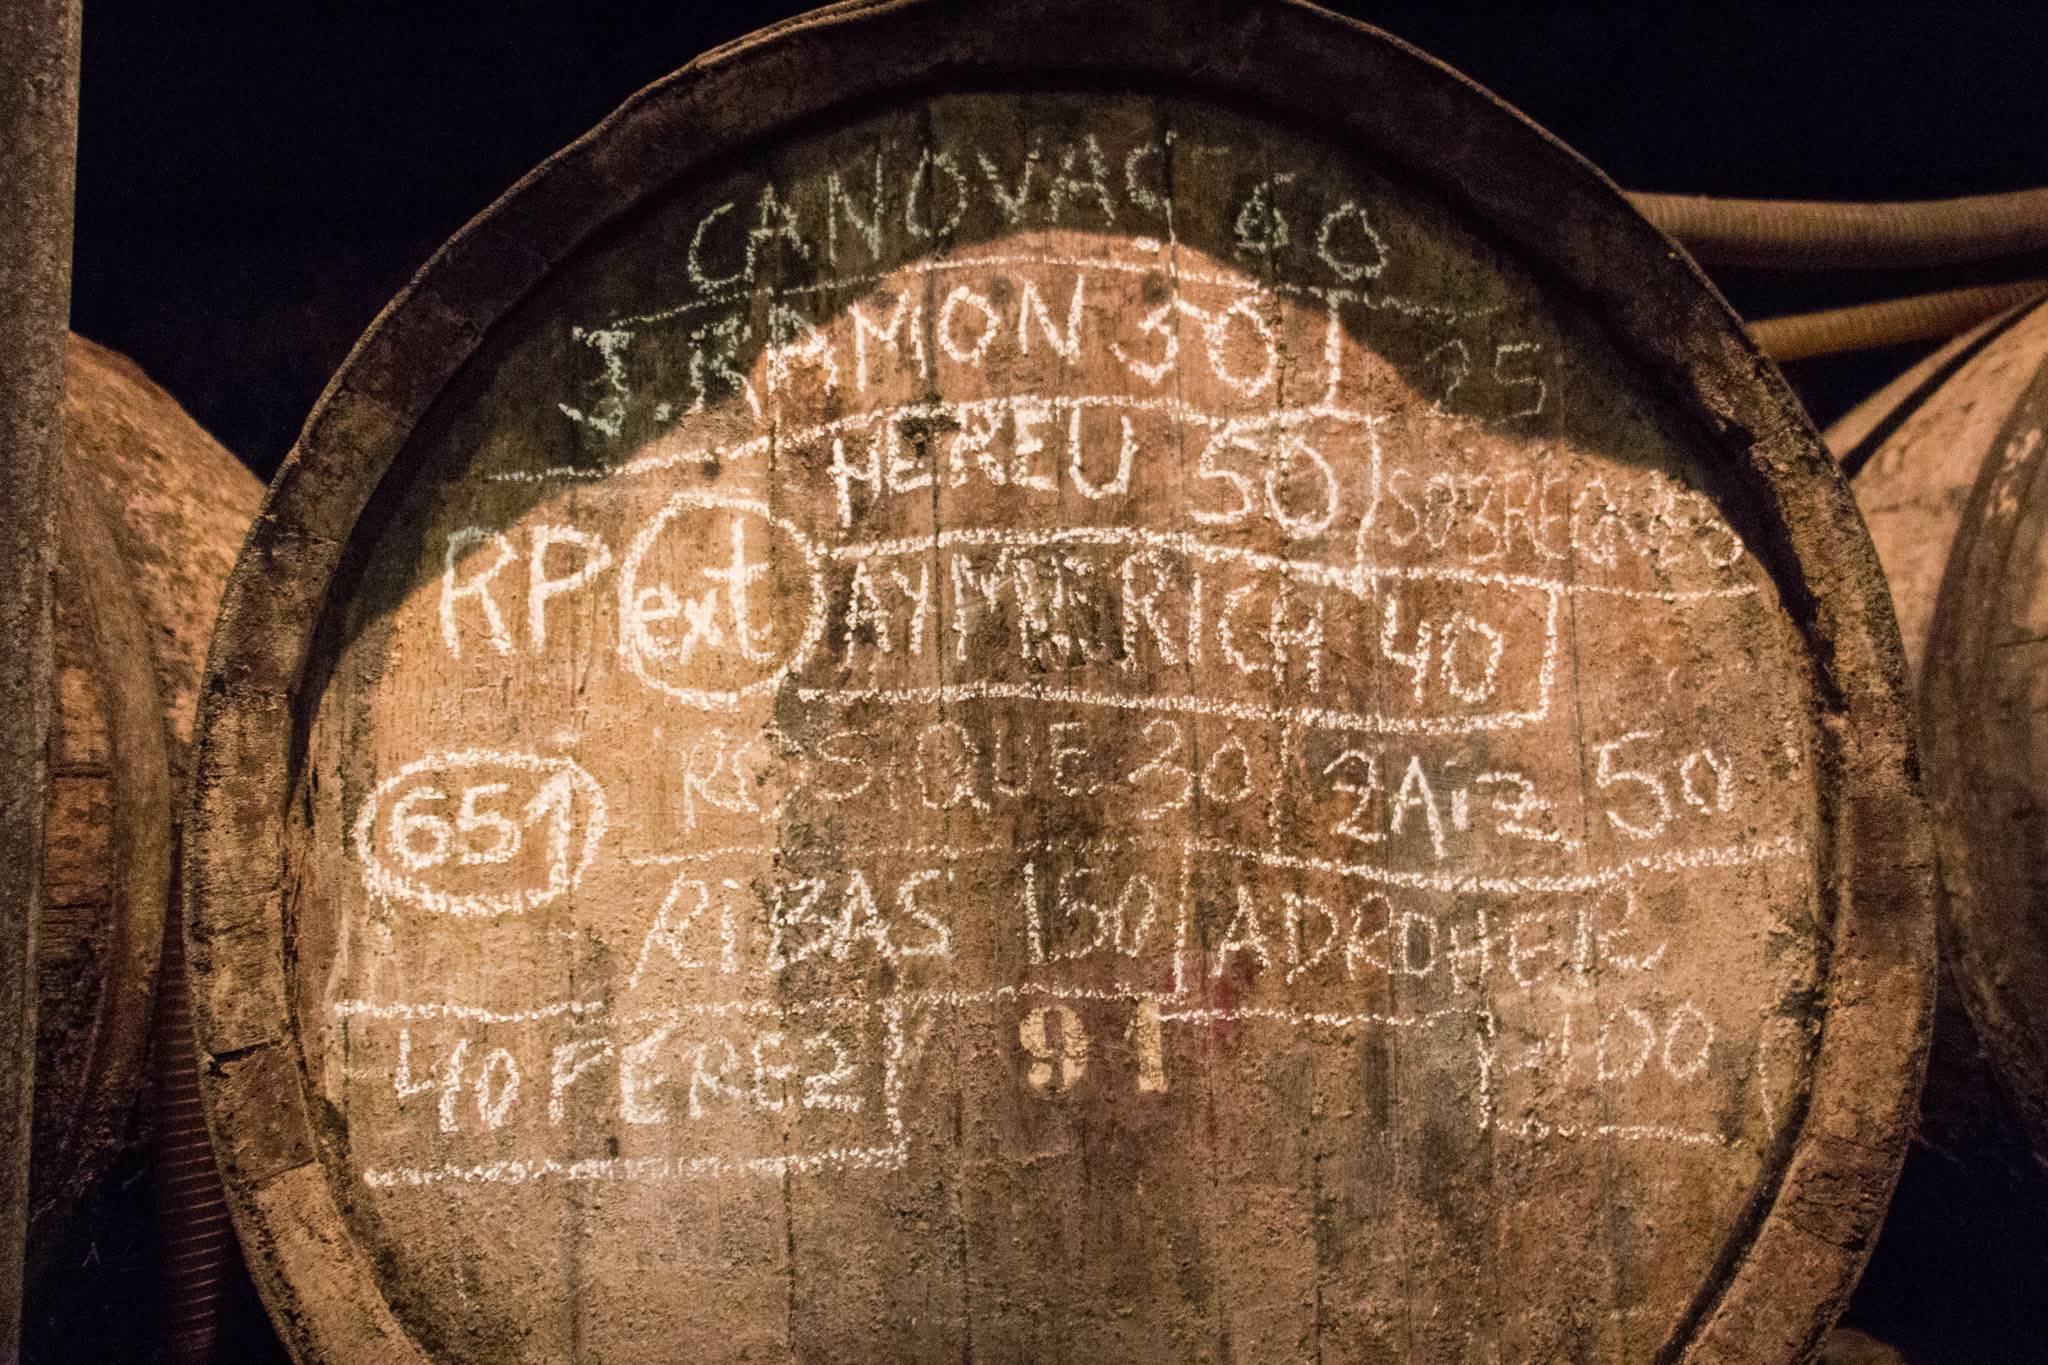 CANOVAS 40
J.RAMON 30
25
HEREU 50
RP ext
AYMERICH 40
ROSIQUE 30
651
RIBAS 150
ADROHER
100
40 FEREZ
91